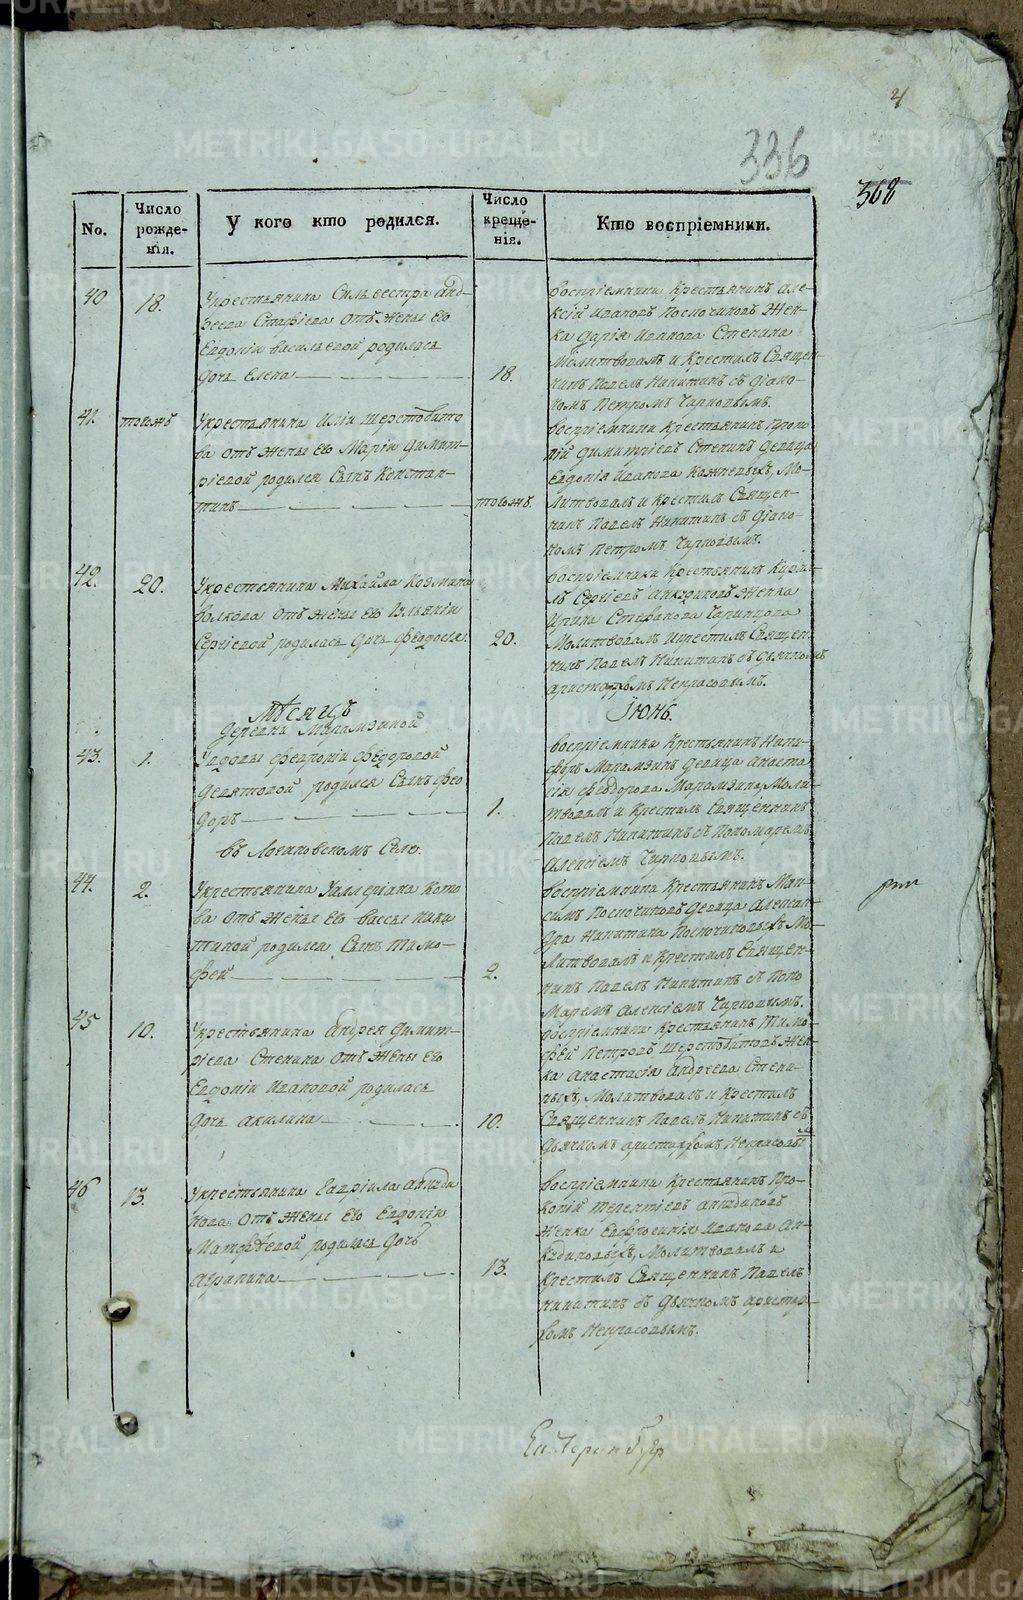 4
336
368
No.
Число рожденія.
У кого кто родился.
Число крещенія.
Кто воспріемники.
40
18.
У крестьянина Сильвестра Анд-
реева Стафіева отъ жены его
Евдокіи Васильевой родилась
дочь Елена
18.
воспріемники крестьянинъ Але-
ксій Ивановъ Поскочиновъ Жен-
ка Дарія Иванова Стенина
Молитвовалъ и крестилъ Священ-
никъ Павелъ Никитинъ съ діако-
номъ Петромъ
41.
тогожъ
У крестьянина Иліи Шерстобито
ва отъ жены его Маріи Димит-
ріевой родился сынъ Констан-
тинъ
тогожъ.
воспріемники крестьянинъ Проко
пій Димитріевъ Стенинъ девица
Евдокія Иванова Мо-
литвовалъ и крестилъ Священ-
никъ Павелъ Никитинъ съ діако-
номъ Петромъ
42.
20.
У крестьянина Михаила Козмина
Волкова отъ жены его Іуліаніи
Сергіевой родилась дочь Феодосія.
20.
воспріемники крестьянинъ Кирил-
лъ Сергіевъ женка
Ирина Стефанова
Молитвовалъ и крестилъ Священ-
никъ Павелъ Никитинъ съ дьячкомъ
Аристархомъ Некрасовымъ.
Мѣсяцъ
Іюнь.
Деревни Маламзиной
43.
1.
У вдовы Февроніи Феодоровой
Девятовой родился сынъ Фео
доръ
1.
воспріемники крестьянинъ Ники-
форъ Маламзинъ девица Анаста
сія Феодорова Маламзина, Моли-
твовалъ и крестилъ Священникъ
Павелъ Никитинъ съ пономаремъ
Алексіемъ
въ Логиновскомъ селе.
44.
2.
У крестьянина Валлеріана Кото
ва отъ жены его Вассы Ники
тиной родился сынъ Тимо-
фей
2.
воспріемники крестьянинъ Мак-
симъ Поскочиновъ девица Алексан-
дра Никитина Поскочиновыхъ Мо-
литвовалъ и крестилъ Священ-
никъ Павелъ Никитинъ съ поно
маремъ Алексіемъ
45
10.
У крестьянина Андрея Димит-
ріева Стенина отъ жены его
Евдокіи Ивановой родилась
дочь Акилина
10.
воспріемники крестьянинъ Тимо-
фей Петровъ Шерстобитовъ жен-
ка Анастасія Андреева Стени-
ныхъ, Молитвовалъ и крестилъ
Священникъ Павелъ Никитинъ съ
дьячкомъ Аристархомъ Некрасовым
46
13.
У крестьянина Гавріила Анкуди
нова отъ жены его Евдокіи
Матфеевой родилась дочь
Агрипина
13.
воспріемники крестьянинъ Про-
копій Терентіевъ Анкудиновъ
женка Евфросинія Иванова Ан-
кудиновыхъ, Молитвовалъ и
крестилъ Священникъ Павелъ
Никитинъ съ дьячкомъ Аристар-
хомъ Некрасовымъ.
METRIKI.GASO-URAL.RU